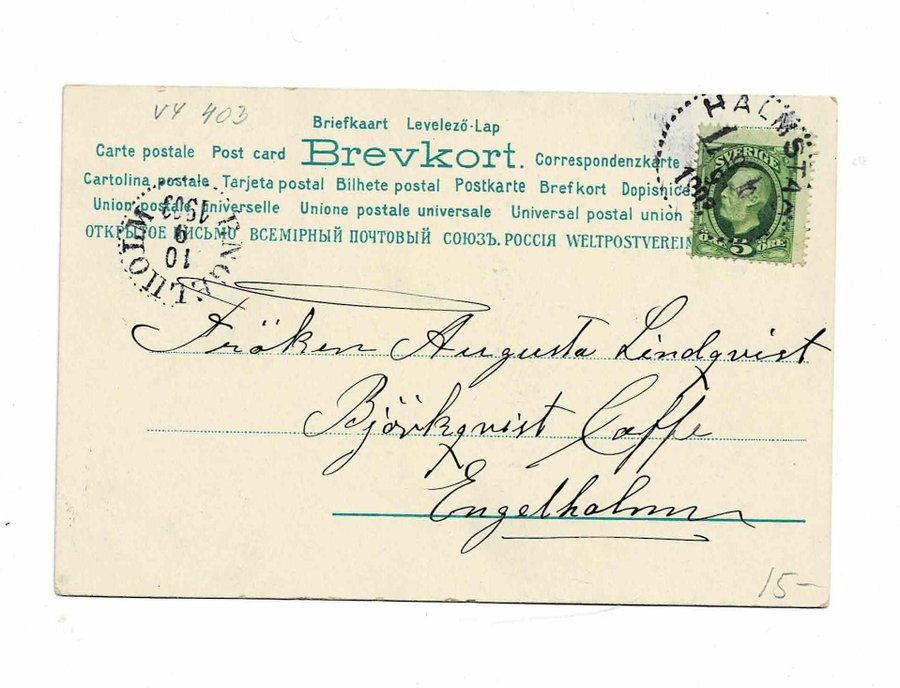 V4 403
Briefkaart Levelező-Lap
Carte postale Post card Brevkort. Correspondenzkarte
Cartolina postale Tarjeta postal Bilhete postal Postkarte Brefkort Dopisnice
Union postale universelle Unione postale universale Universal postal union
ОТКРЫТОЕ ПИСЬМО ВСЕМІРНЫЙ ПОЧТОВЫЙ СОЮЗЪ. РОССІЯ WELTPOSTVEREIN
HALMSTAD
SVERIGE
5 ÖRE
ENGELHOLM
10
9
1903
Fröken Augusta Lindqvist
Björkqvist Caffe
Engelholm
15-